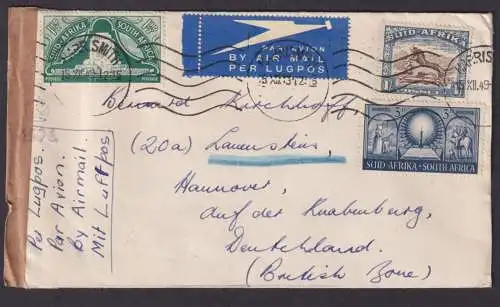 SUID-AFRIKA SOUTH AFRICA
PAR AVION
BY AIR MAIL
PER LUGPOS
SUID-AFRIKA
15 XII 49
Kirchhoff,
(20a) Lauenstein,
Hannover,
auf der Knabenburg,
Deutschland.
(British Zone)
Per Lugpos.
Par Avion.
By Airmail.
Mit Luftpos
SUID AFRIKA SOUTH AFRICA